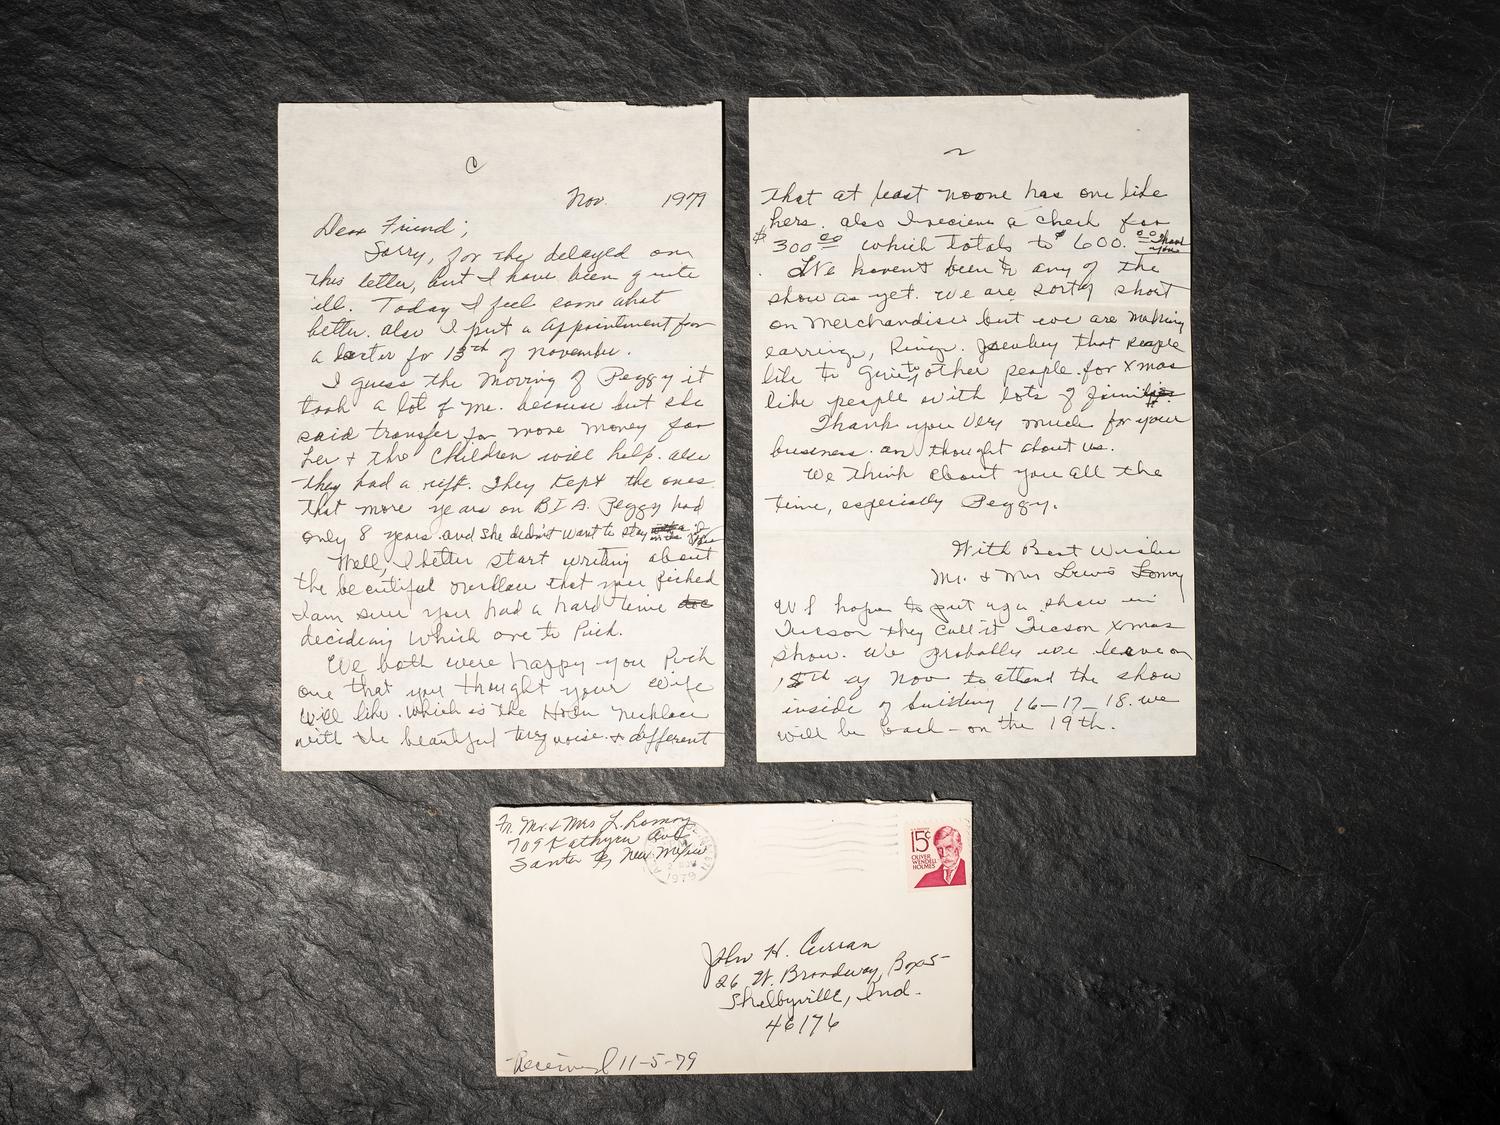 Nov. 1979
Dear Friend;
Sorry, for the delayed on
this letter, but I have been quite
ill. Today I feel some what
better. also I put a appointment for
a docter for 13th of november.
I guess the moving of Peggy it
took a lot of me. because but she
said transfer for more money for
her + the children will help. also
they had a rift. They kept the ones
that more years on BIA. Peggy had
only 8 years and she didn't want to stay
Well, I better start writing about
the beautiful that you picked
I am sure you had a hard time
deciding which one to Pick.
We both were happy you Pick
one that you thought your wife
will like. which is the necklace
with the beautiful turquoise. + different
2
that at least noone has one like
hers. also I recieve a check for
$300.00 which totals to $600.00 thank you
We havent been to any of the
show as yet. we are sort of short
on merchandise but we are making
earring, Ring. Jewelry that people
like to give to other people for Xmas
like people with lots of
Thank you very much for your
business. an thought about us.
We think about you all the
time, especially Peggy.
With Best Wishes
Mr. & Mrs Lewis Lomay
We hope to put up a show in
Tucson they call it Tucson Xmas
show. We probably we leave on
15th of Nov to attend the show
inside of building 16-17-18. we
will be back on the 19th.
Fr. Mr & Mrs L. Lomay
709 Kathyrn Ave
Santa Fe, New Mexico
1979
15¢
OLIVER
WENDELL
HOLMES
John H. Curran
26 W. Broadway, Box 5
Shelbyville, Ind.
46176
Received 11-5-79